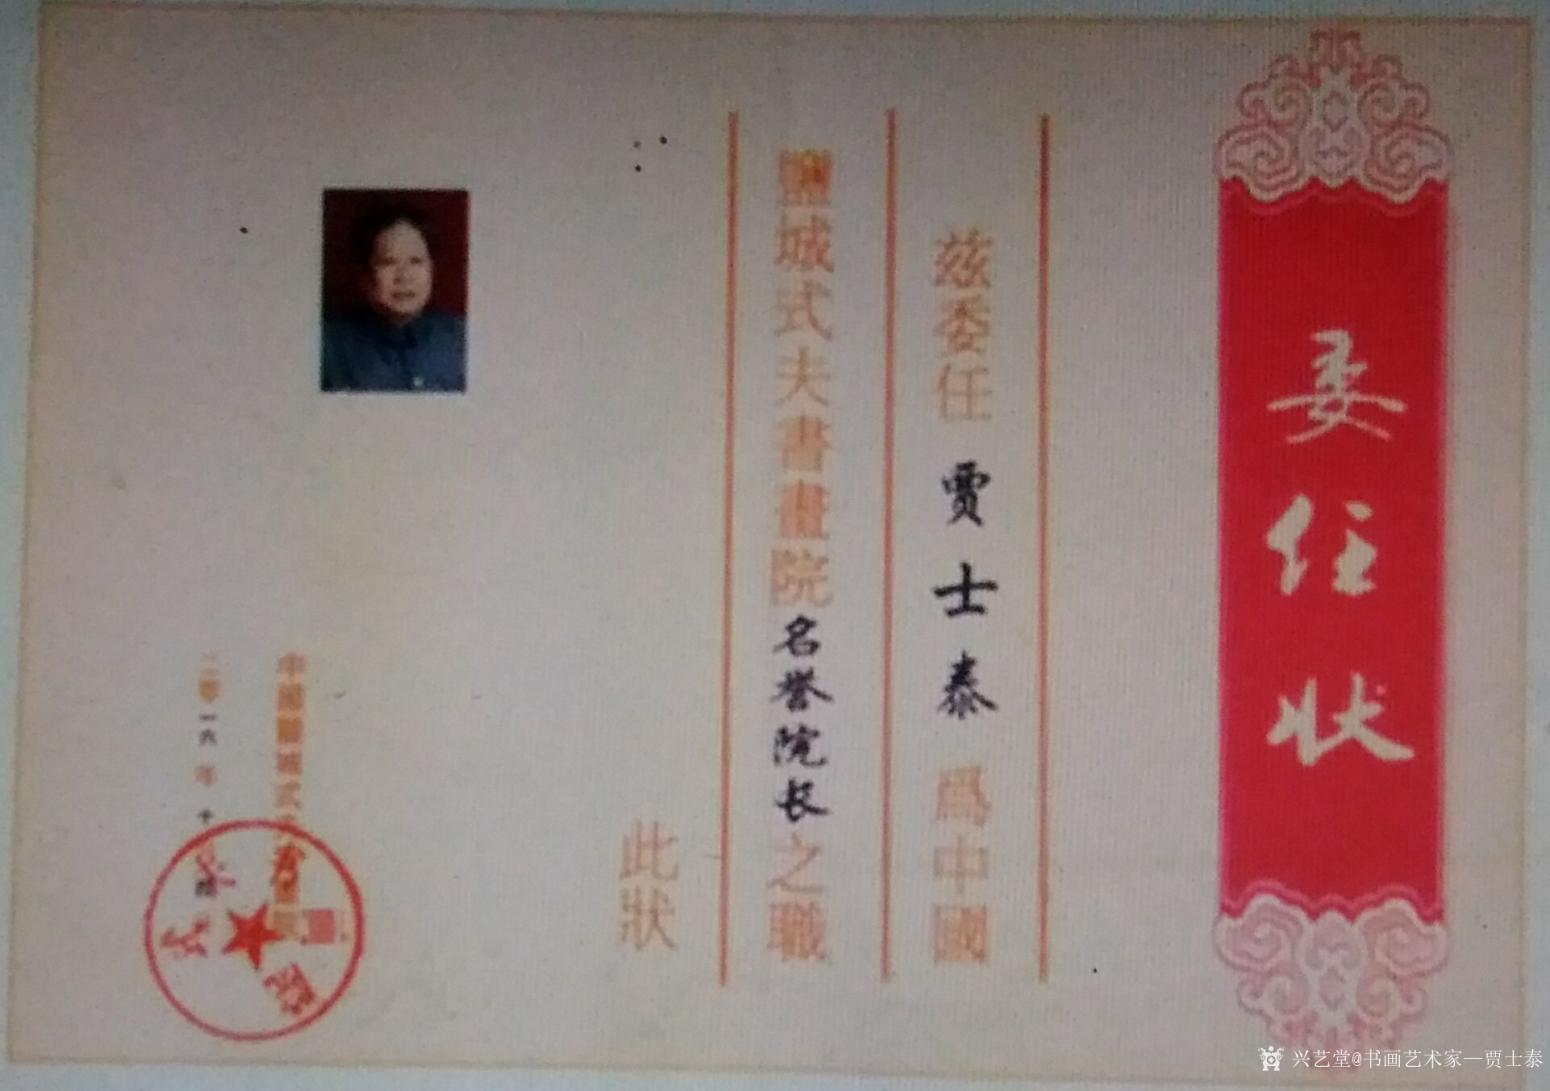 委任状
兹委任 贾士泰 爲中國
鹽城式夫書畫院名誉院长之職
此狀
中國鹽城式夫書畫院
二零一六年十
兴艺堂@书画艺术家—贾士泰